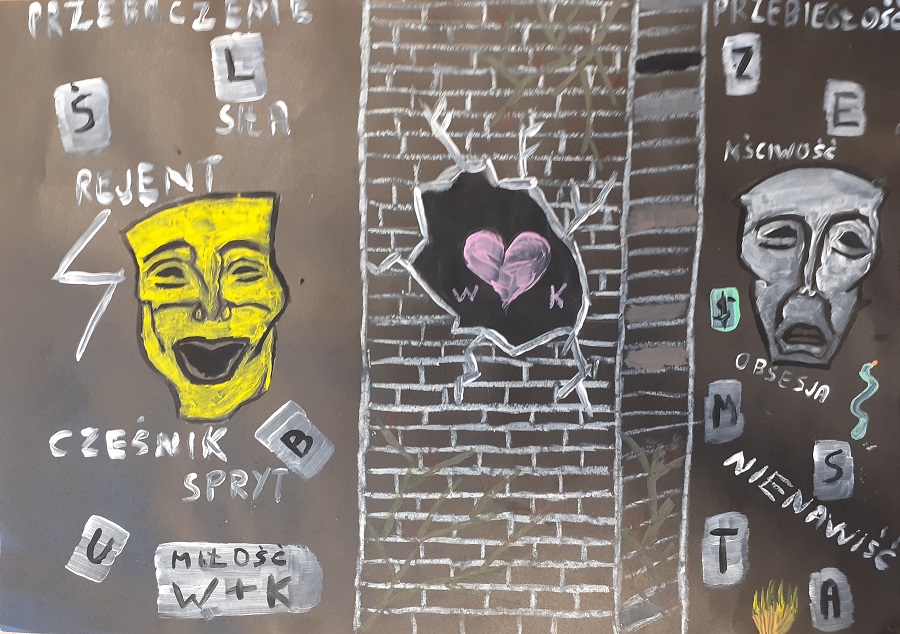 PRZEBACZENIE
L
Ś
SIŁA
REJENT
CZEŚNIK
B
SPRYT
U
MIŁOŚĆ
W+K
W K
PRZEBIEGŁOŚĆ
Z
E
MŚCIWOŚĆ
$
OBSESJA
M
S
NIENAWIŚĆ
T
A